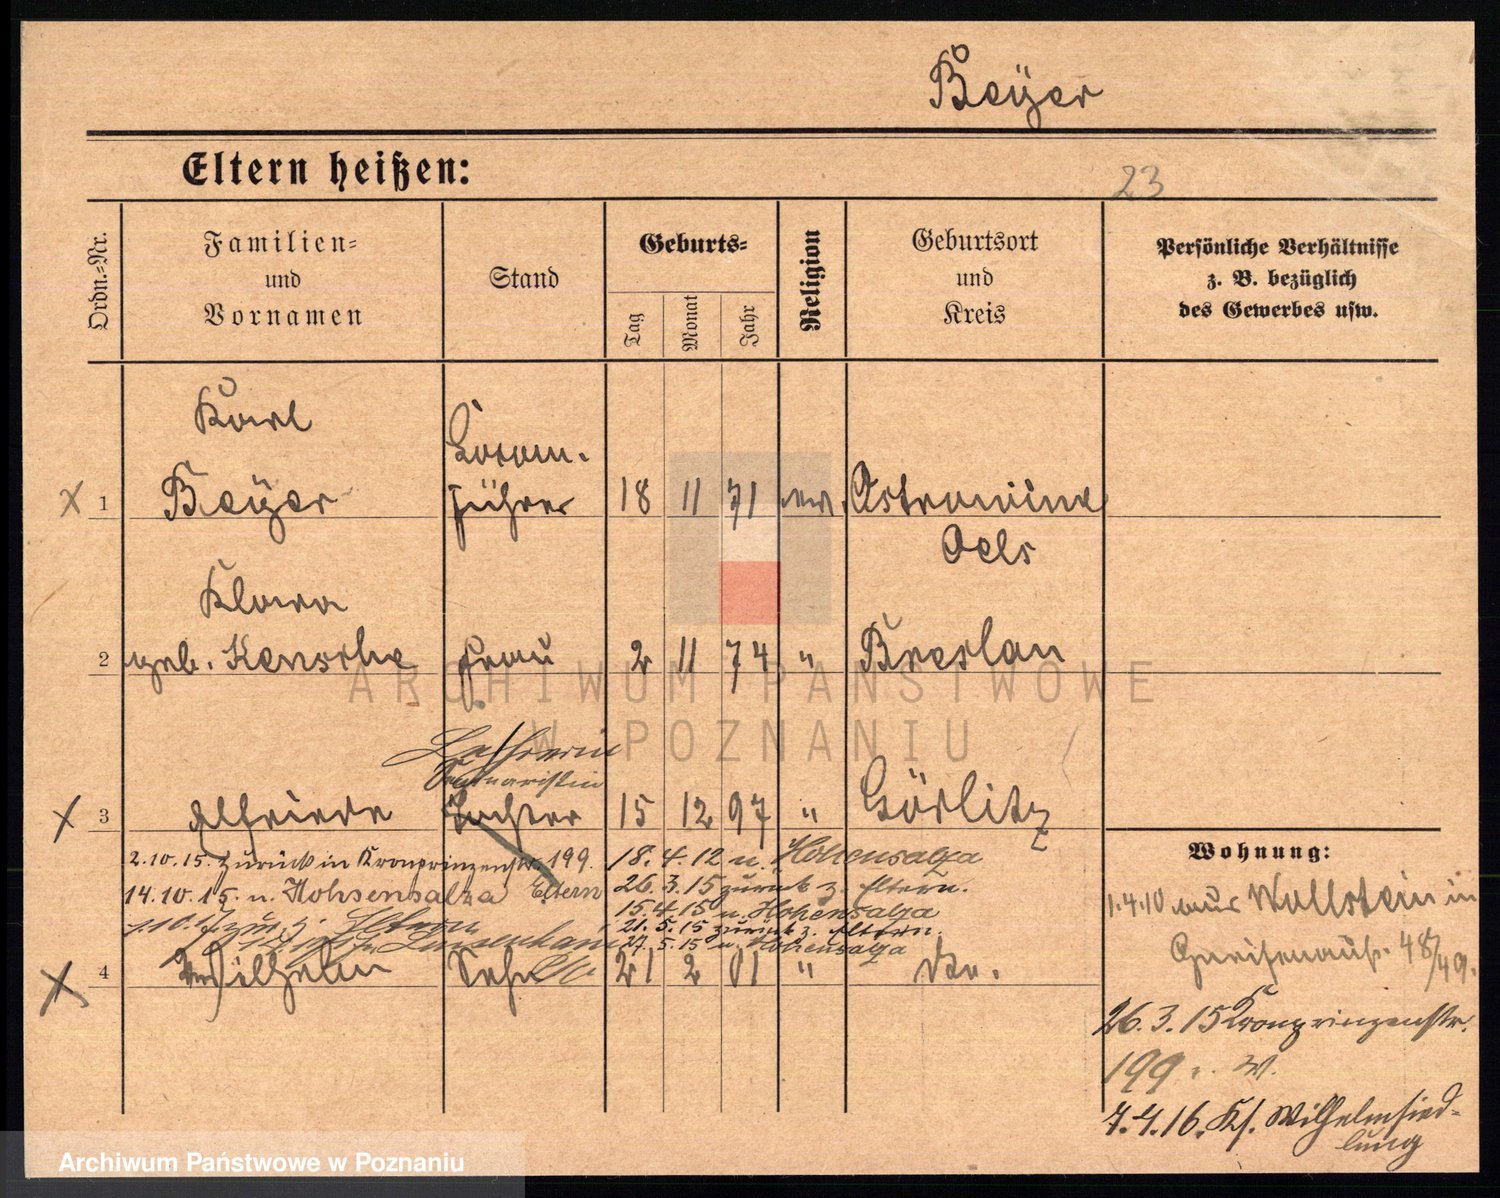 Beÿer
Eltern heißen:
23
Ordn.=Nr.
Familien=
und
Vornamen
Stand
Geburts=
Tag
Monat
Jahr
Religion
Geburtsort
und
Kreis
Persönliche Verhältnisse
z. B. bezüglich
des Gewerbes usw.
Karl
Lokom.
x 1 Beÿer führer 18 11 71 ev. Ostrowine
Oels
Klara
2 geb. Kensche Frau 2 11 74 " Breslau
Lehrerin
Seminaristin
x 3 Elfriede Tochter 15 12 97 " Görlitz
2.10.15. zurück in Kronprinzenstr. 199.
14.10.15. n. Hohensalza Eltern
18.4.12 n. Hohensalza
26.3.15 zurück z. Eltern.
15.4.15 n. Hohensalza
21.5.15 zurück z. Eltern.
27.5.15 n. Hohensalza
1.10.17. zur. z. Eltern
x 4 Wilhelm Sohn 21 2 01 " do.
Wohnung:
1.4.10 aus Wollstein in
Gneisenaustr. 48/49.
26.3.15 Kronprinzenstr.
199
7.4.16. Ks. Wilhelmsied-
lung
ARCHIWUM PAŃSTWOWE
W POZNANIU
Archiwum Państwowe w Poznaniu